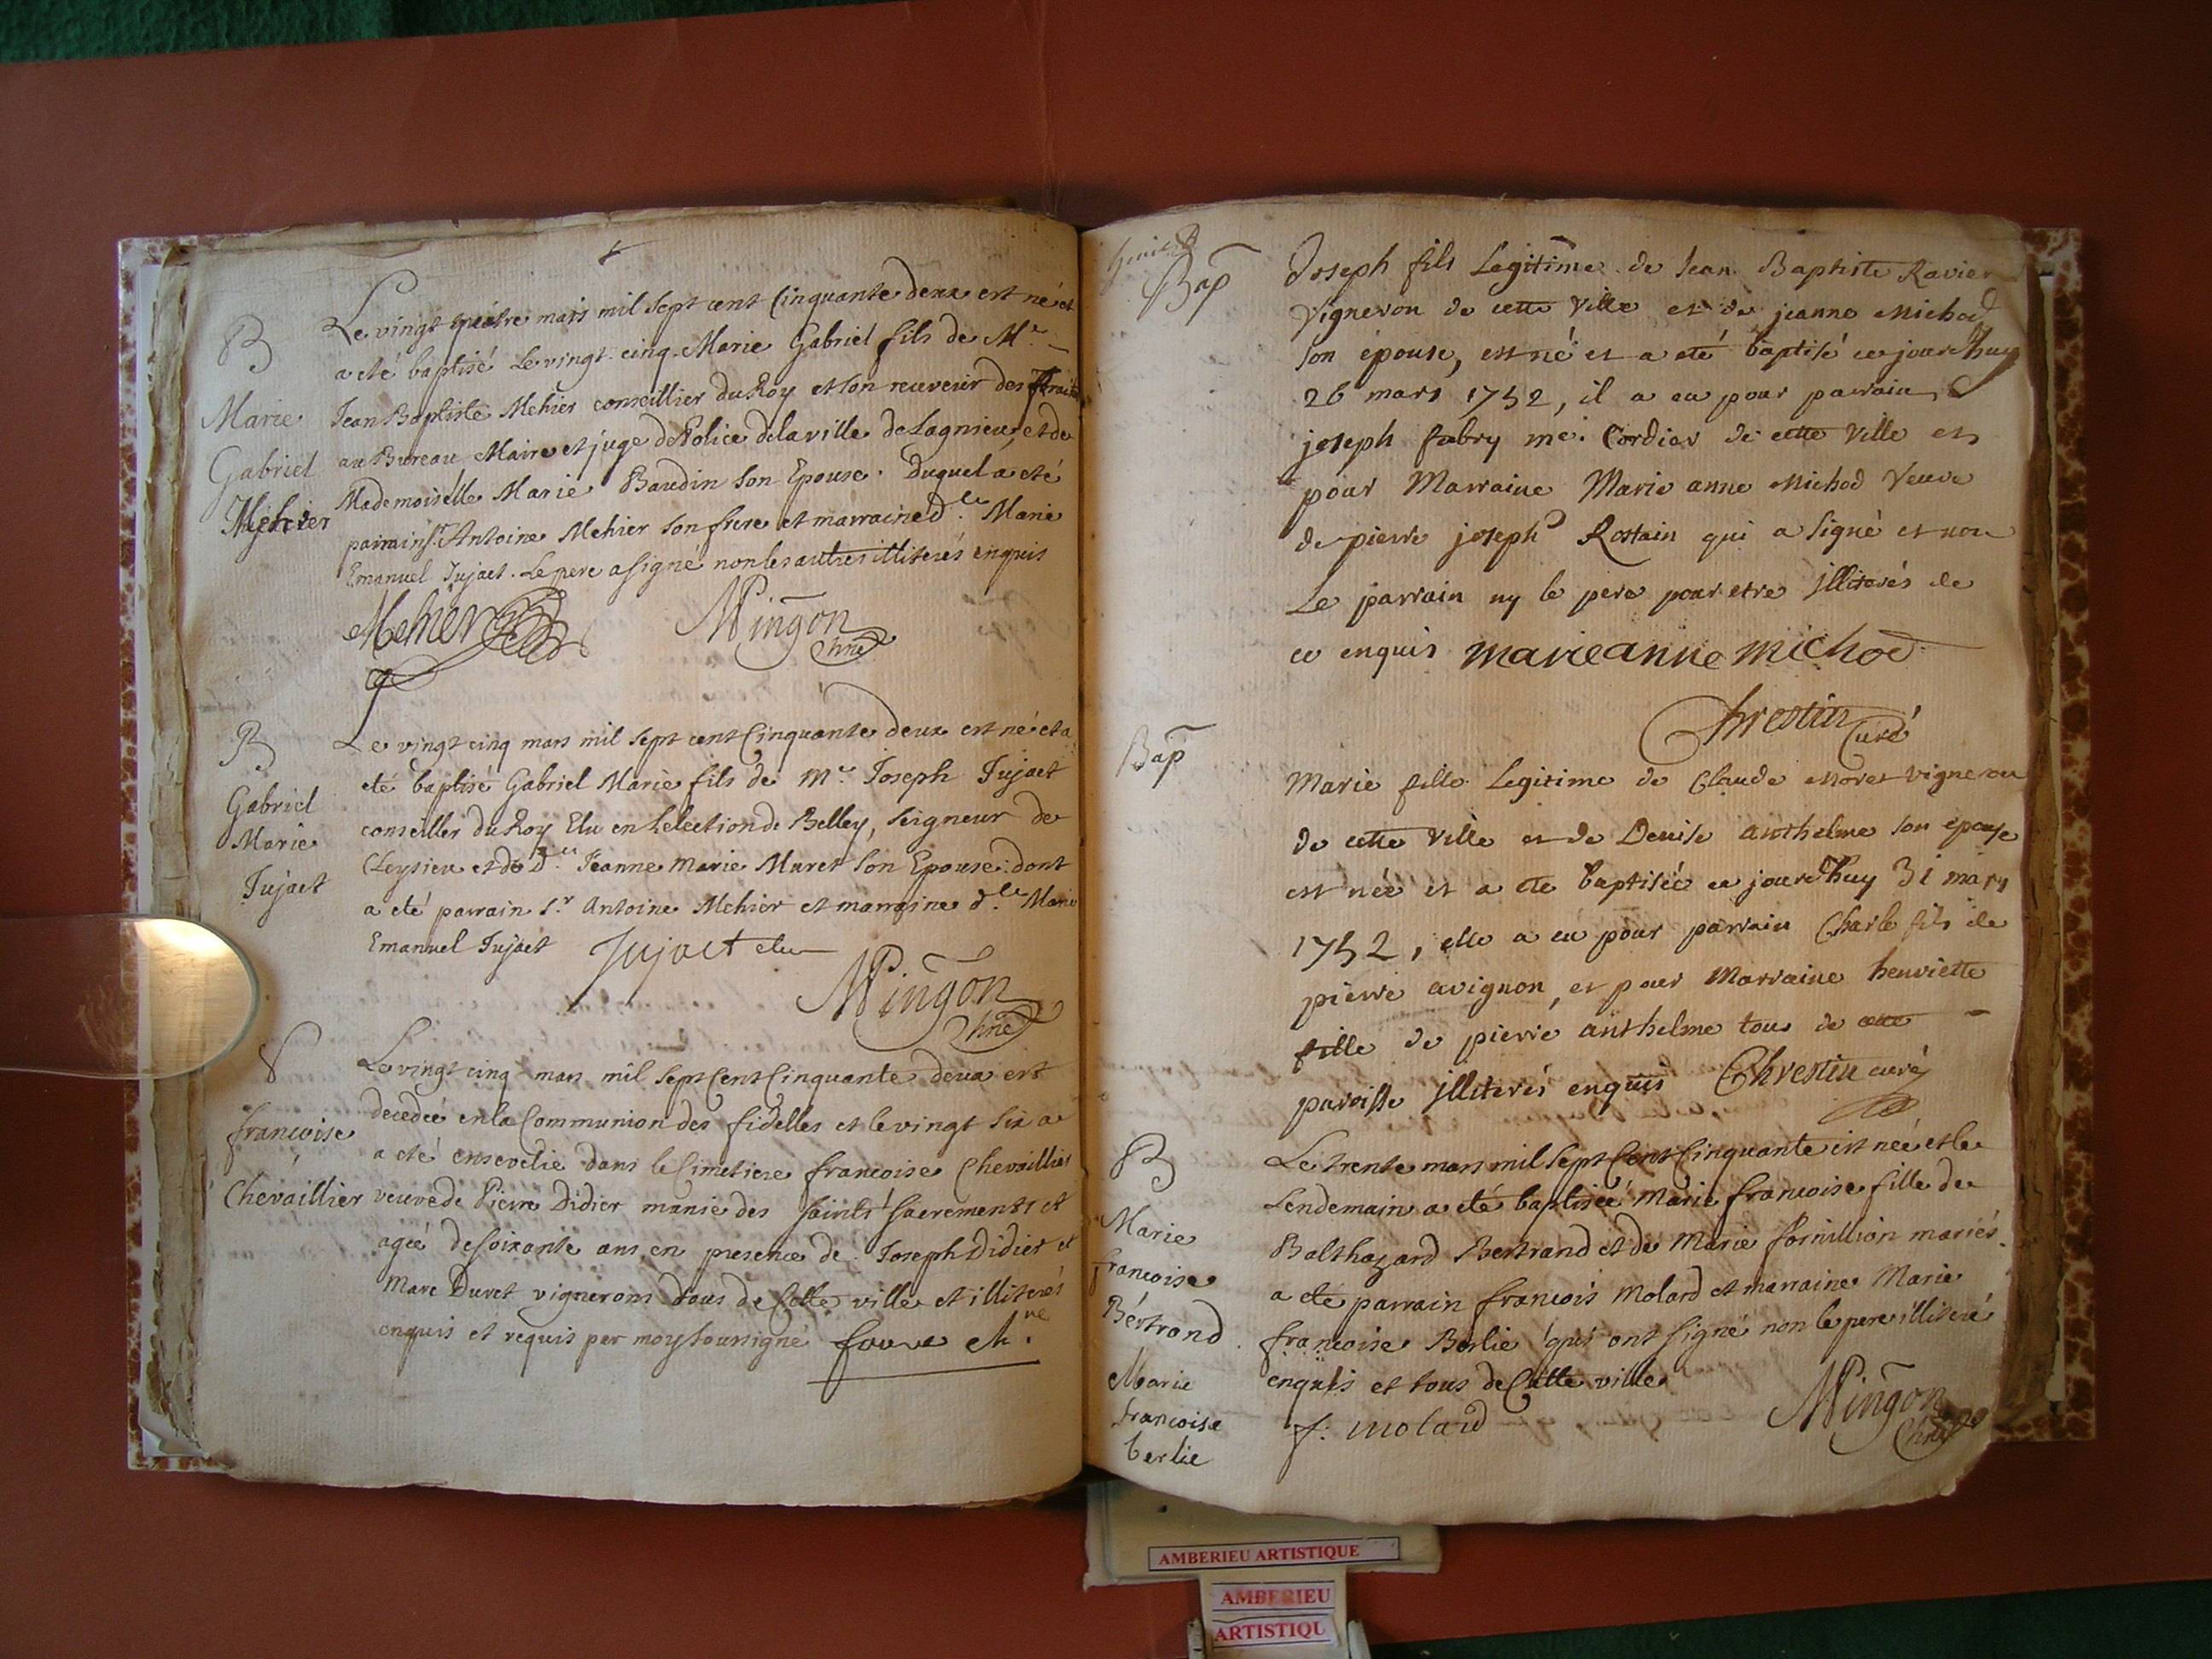 B
Marie
Gabriel
Mehier
Le vingt quatre mars mil sept cent Cinquante deux est né et
a eté baptisé Le vingt cinq Marie Gabriel fils de Mr.
Jean Baptiste Mehier conseillier du Roy et son receveur des
au Bureau Maire et juge de Police de la ville de Lagnieu, et de
Mademoiselle Marie Baudin son Epouse. Duquel a eté
parrain Sr. Antoine Mehier son frere et marraine dlle Marie
Emanuel Jujact. Le pere a signé non les autres illiterés enquis
Mehier
Mingon
B
Gabriel
Marie
Jujact
Le vingt cinq mars mil sept cent Cinquante deux est né et a
eté baptisé Gabriel Marie fils de Mr Joseph Jujact
conseiller du Roy Elu en Lelection de Belley, seigneur de
Cleysieu et de dlle Jeanne Marie Muret son Epouse: dont
a eté parrain Sr Antoine Mehier et marraine dlle Marie
Emanuel Jujact Jujact elu
Mingon
S
francoise
Chevaillier
Le vingt cinq mars mil sept Cent Cinquante deux est
decedeé en la Communion des fidelles et le vingt six a
a eté ensevelie dans le Cimetiere francoise Chevaillier
veuve de Pierre Didier munie des saints sacrements et
ageé de soixante ans en presence de Joseph Didier et
Marc Duret vignerons tous de Cette ville et illiterés
enquis et requis par moy soussigné favre
Bap
Joseph fils Legitime de Jean Baptiste Ravier
vigneron de cette ville et de jeanne Michod
son épouse, est né et a eté baptisé ce jourdhuy
26 mars 1752, il a eu pour parrain
joseph fabry me. Cordier de cette ville et
pour Marraine Marie anne Michod veuve
de pierre joseph Rostain qui a signé et non
Le parrain ny le pere pour etre illiterés de
ce enquis marieanne michod
Chrestin
Curé
Bap
Marie fille Legitime de Claude Moret vigneron
de cette ville et de Denise anthelme son epouse
est née et a ete baptisée ce jourdhuy 31 mars
1752, elle a eu pour parrain Charle fils de
pierre avignon, et pour Marraine henriette
fille de pierre anthelme tous de cette
paroisse illiterés enquis Chrestin curé
B
Marie
francoise
Bértrand
Marie
francoise
berlie
Le trente mars mil sept Cent Cinquante est neé et le
Lendemain a eté baptiseé Marie francoise fille de
Balthazard Bertrand et de Marie fornillion mariés.
a eté parrain francois Molard et marraine Marie
francoise Berlie qui ont signé non le pere illiteré
enquis et tous de Cette ville
f. molard
Mingon
AMBERIEU ARTISTIQUE
AMBERIEU
ARTISTIQU